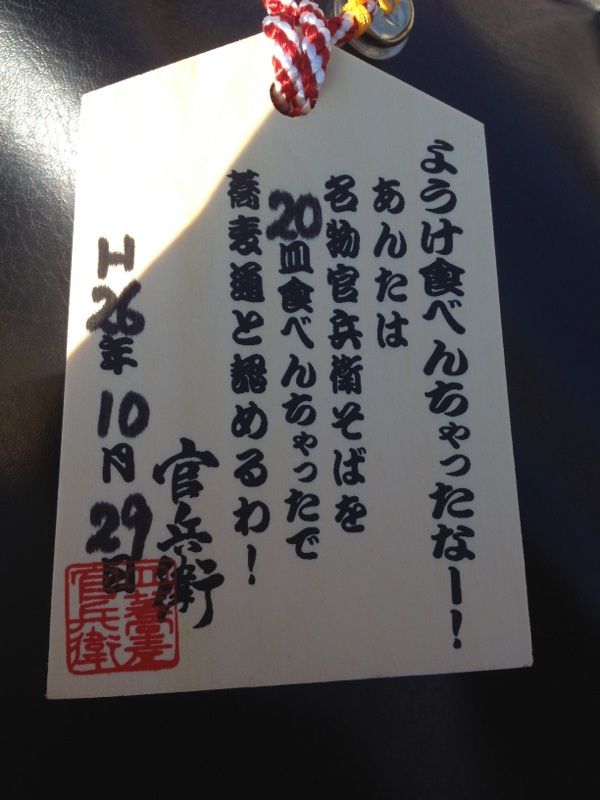 ようけ食べんちゃったなー!
あんたは
名物官兵衛そばを
20皿食べんちゃったで
蕎麦通と認めるわ!
官兵衛
H26年10月29日
官兵衛